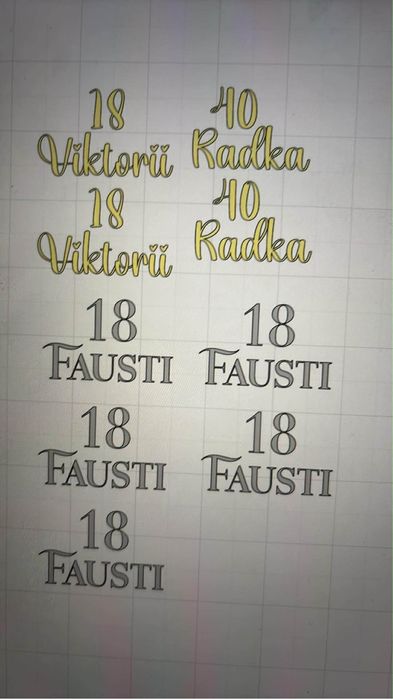 18
Viktorii
40
Radka
18
Viktorii
40
Radka
18
FAUSTI
18
FAUSTI
18
FAUSTI
18
FAUSTI
18
FAUSTI